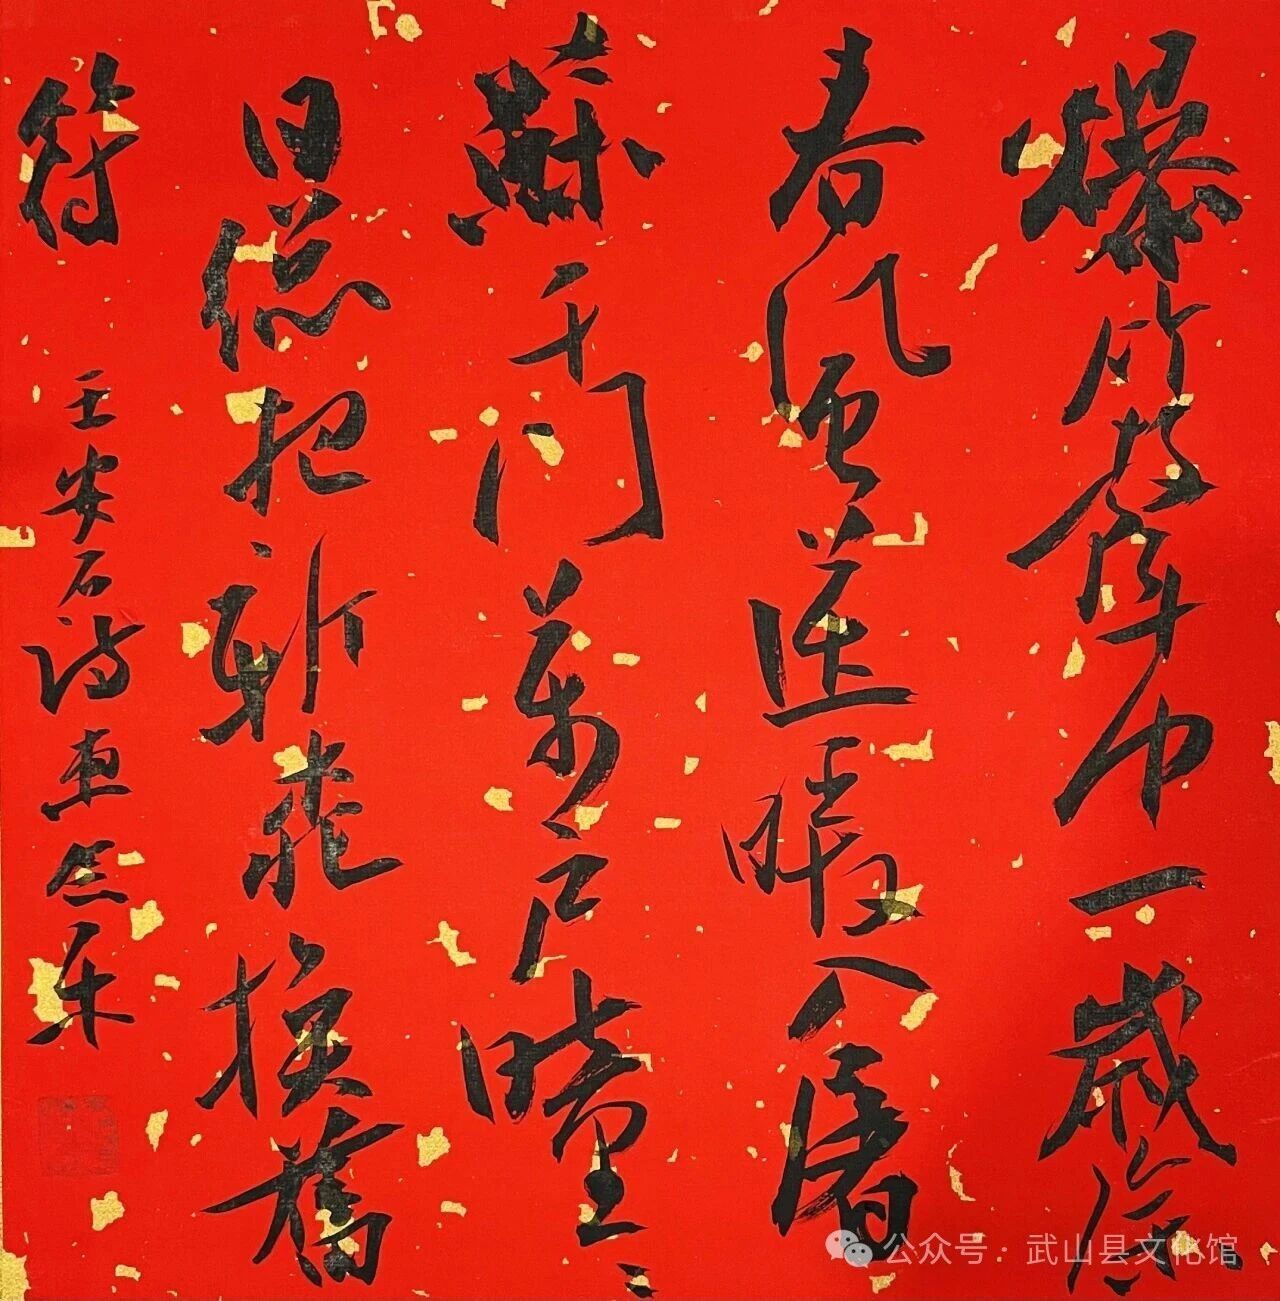 爆竹聲中一歲除
春風送暖入屠
蘇千門萬戶曈〻
日總把新桃換舊
符
王安石詩
公众号：武山县文化馆